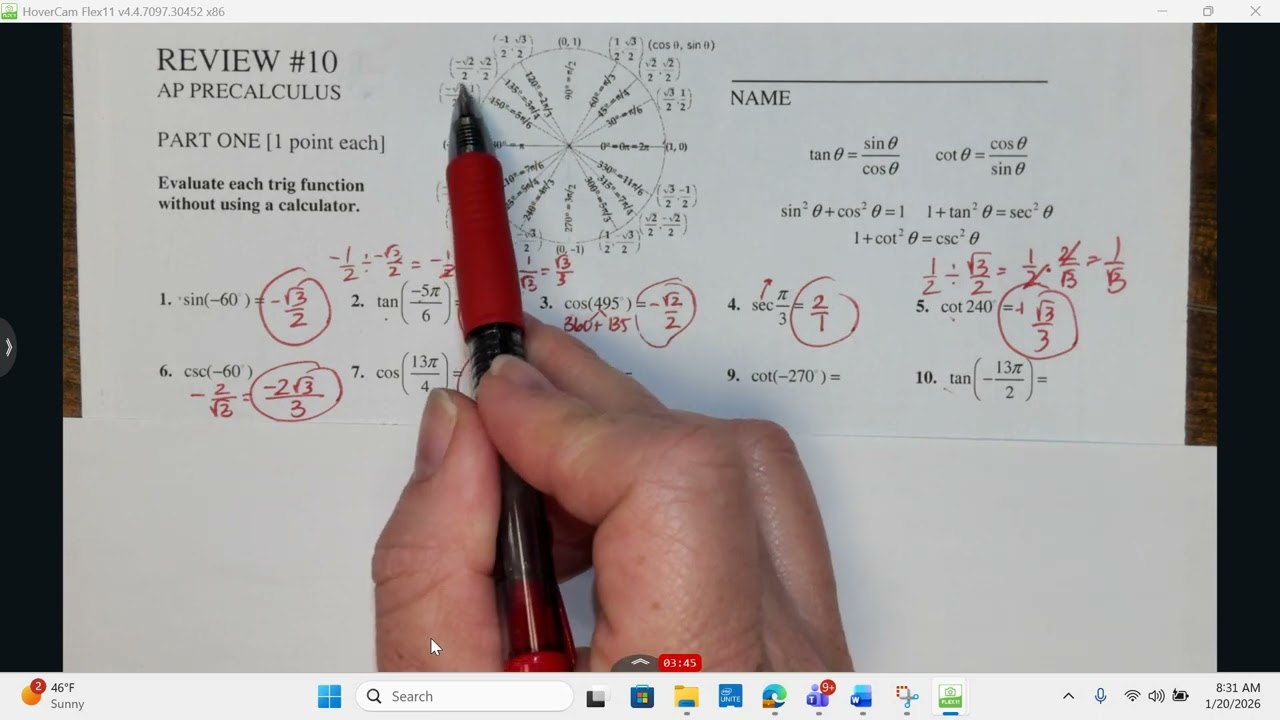 HoverCam Flex11 v4.4.7097.30452 x86
REVIEW #10
AP PRECALCULUS
PART ONE [1 point each]
Evaluate each trig function
without using a calculator.
(-1/2, √3/2)
(0, 1)
(1/2, √3/2) (cos θ, sin θ)
(-√2/2, √2/2)
(√2/2, √2/2)
(√3/2, 1/2)
120°=2π/3
90° = π/2
60°=π/3
135°=3π/4
45°=π/4
150°=5π/6
30°=π/6
0°=0π=2π (1, 0)
330°=11π/6
315°=7π/4
300°=5π/3
270° = 3π/2
240°=4π/3
(√3/2, -1/2)
(√2/2, -√2/2)
(0, -1)
(1/2, -√3/2)
NAME
tan θ = sin θ/cos θ cot θ = cos θ/sin θ
sin² θ + cos² θ = 1 1 + tan² θ = sec² θ
1 + cot² θ = csc² θ
-1/2 ÷ -√3/2 = -1/2
1/√3 = √3/3
1/2 ÷ √3/2 = 1/2 · 2/√3 = 1/√3
1. sin(-60°) = -√3/2
2. tan(-5π/6) =
3. cos(495°) = -√2/2
360 + 135
4. sec π/3 = 2/1
5. cot 240° = + √3/3
6. csc(-60°)
-2/√3 = -2√3/3
7. cos(13π/4) =
9. cot(-270°) =
10. tan(-13π/2) =
03:45
2
46°F
Sunny
Search
UNITE
9+
FLEX11
8:31 AM
1/20/2026